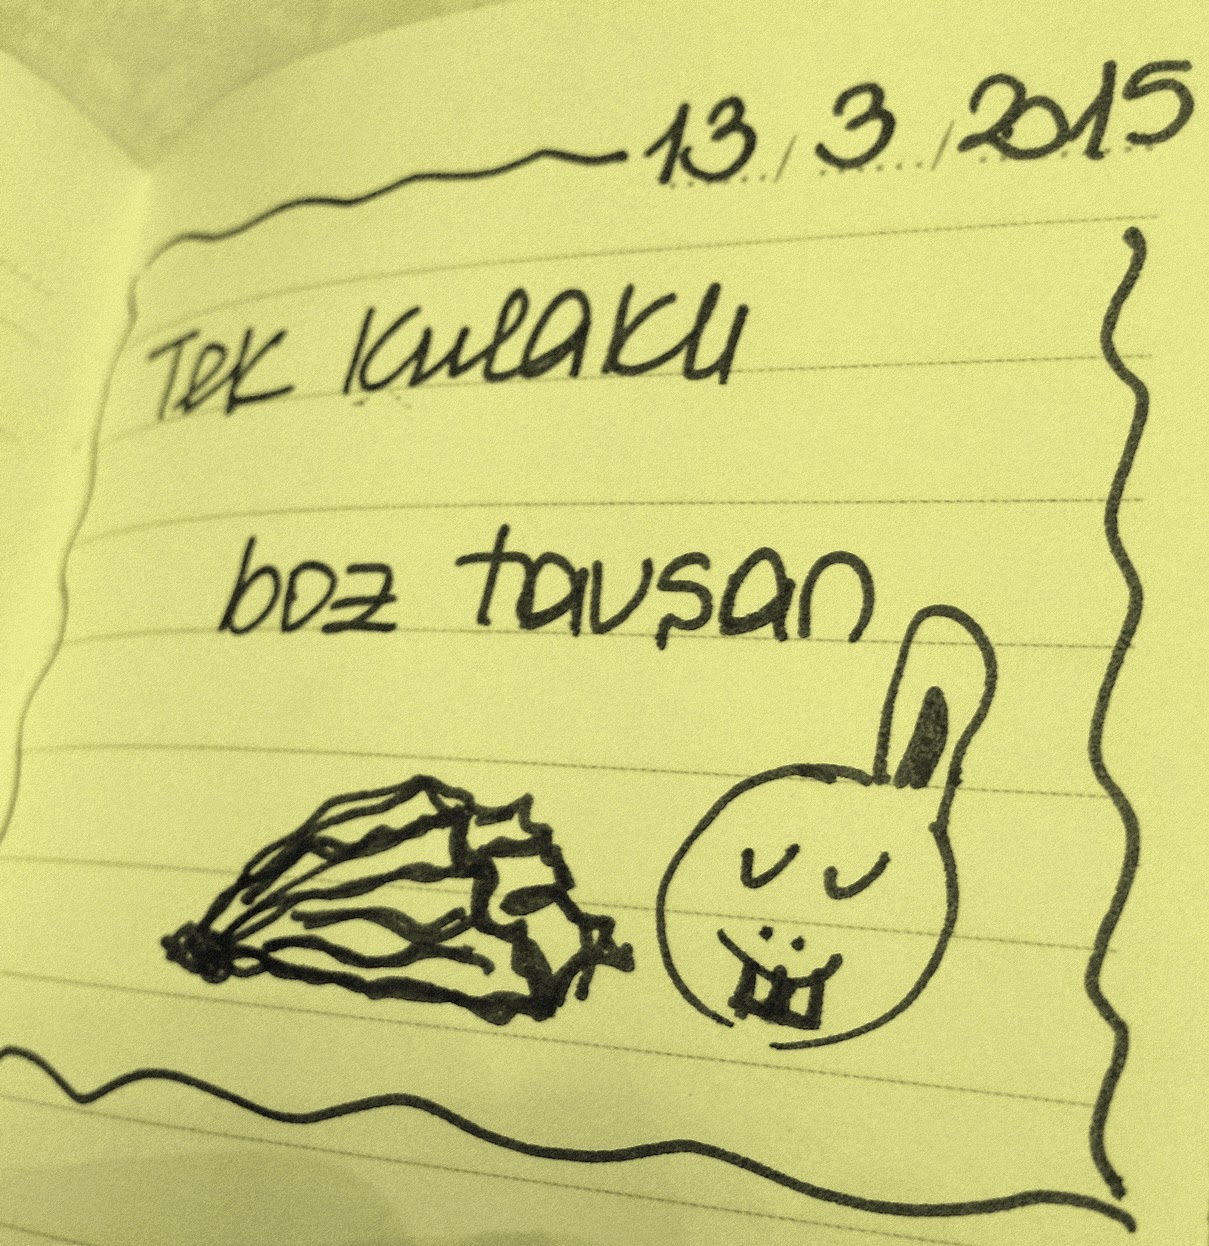 13/3/2015
Tek Kulaklı
boz tavşan